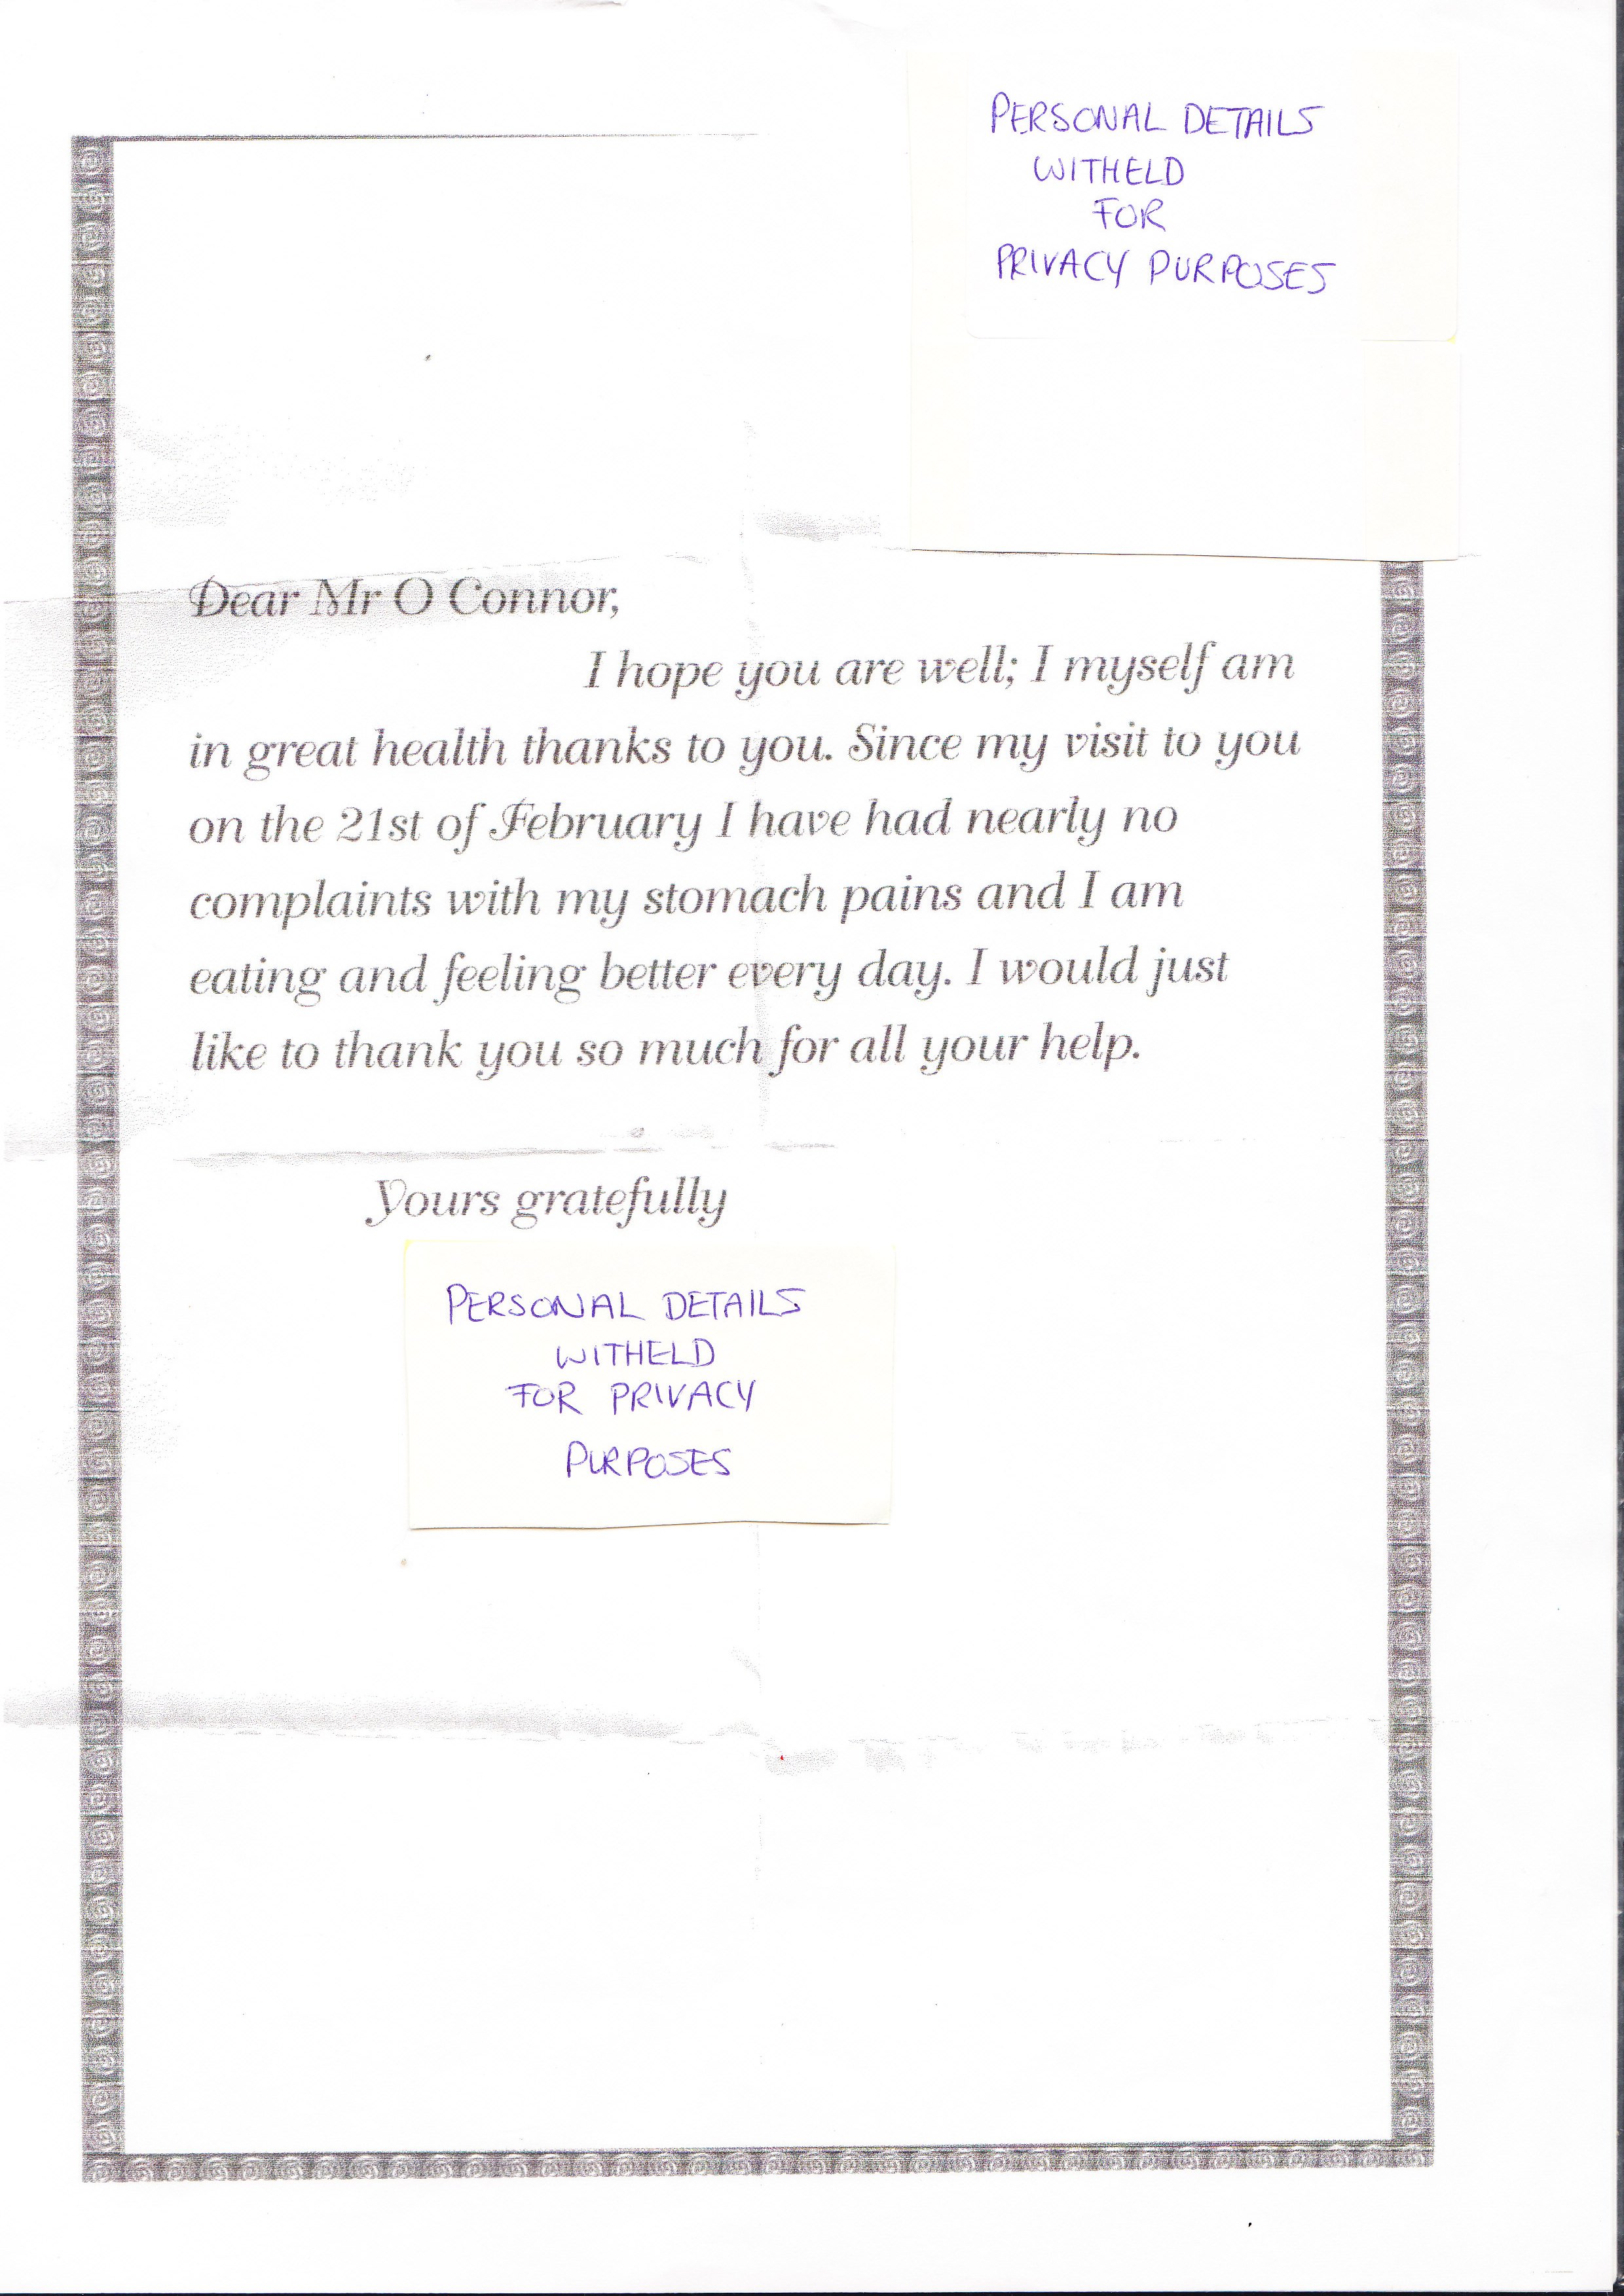 PERSONAL DETAILS
WITHELD
FOR
PRIVACY PURPOSES
Dear Mr O Connor,
I hope you are well; I myself am
in great health thanks to you. Since my visit to you
on the 21st of February I have had nearly no
complaints with my stomach pains and I am
eating and feeling better every day. I would just
like to thank you so much for all your help.
Yours gratefully
PERSONAL DETAILS
WITHELD
FOR PRIVACY
PURPOSES